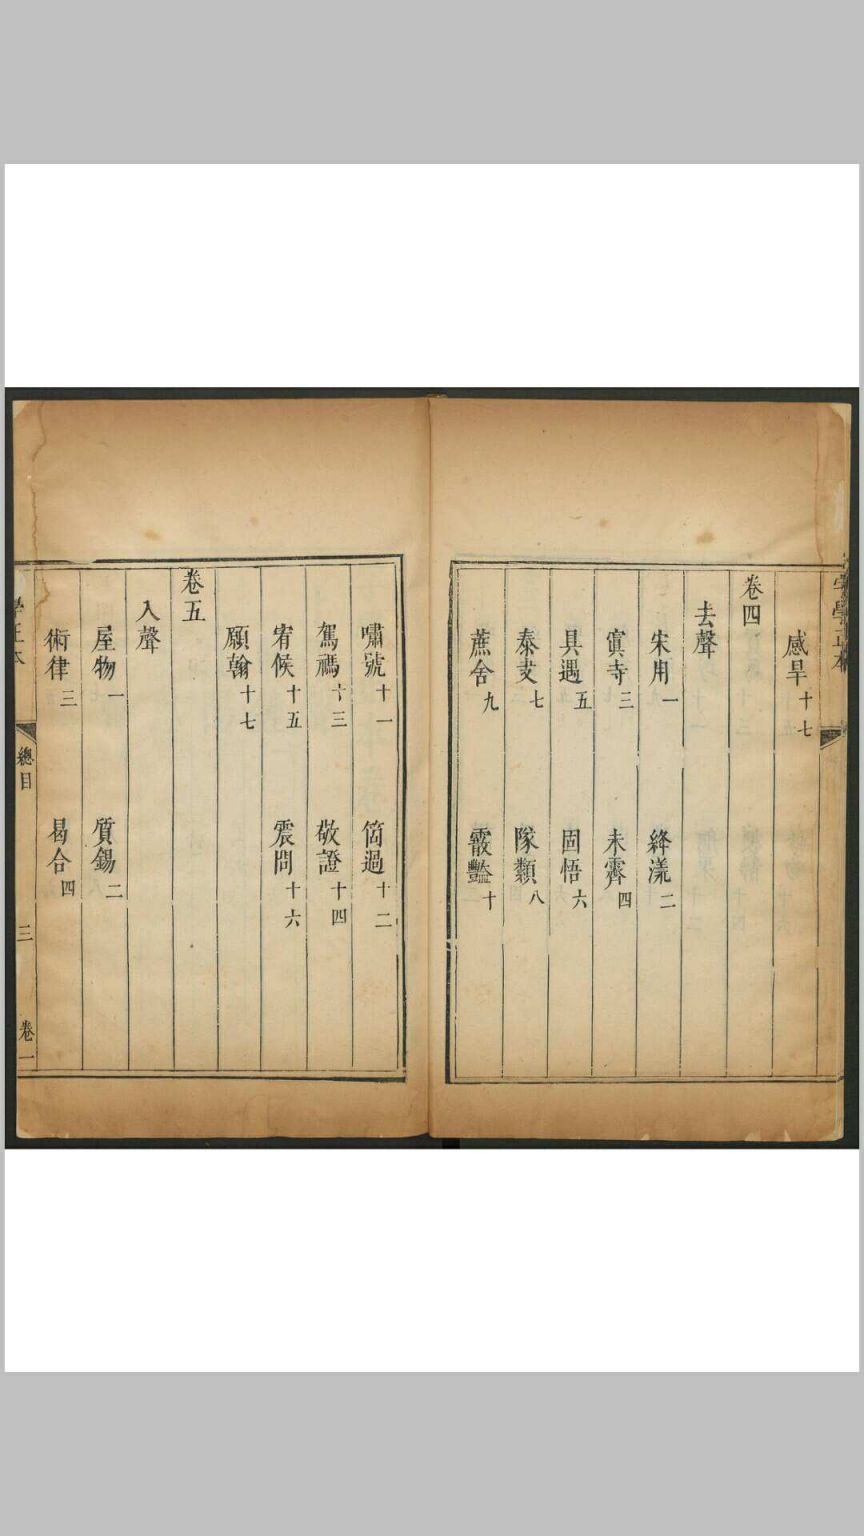 字學正本
感旱十七
卷四
去聲
宋用一 絳漾二
寘寺三 未霽四
具遇五 固悟六
泰叏七 隊纇八
蔗舍九 霰豔十
嘯號十一 箇過十二
駕禡十三 敬證十四
宥候十五 震問十六
願翰十七
卷五
入聲
屋物一 質錫二
術律三 曷合四
學正本 總目 三 卷一